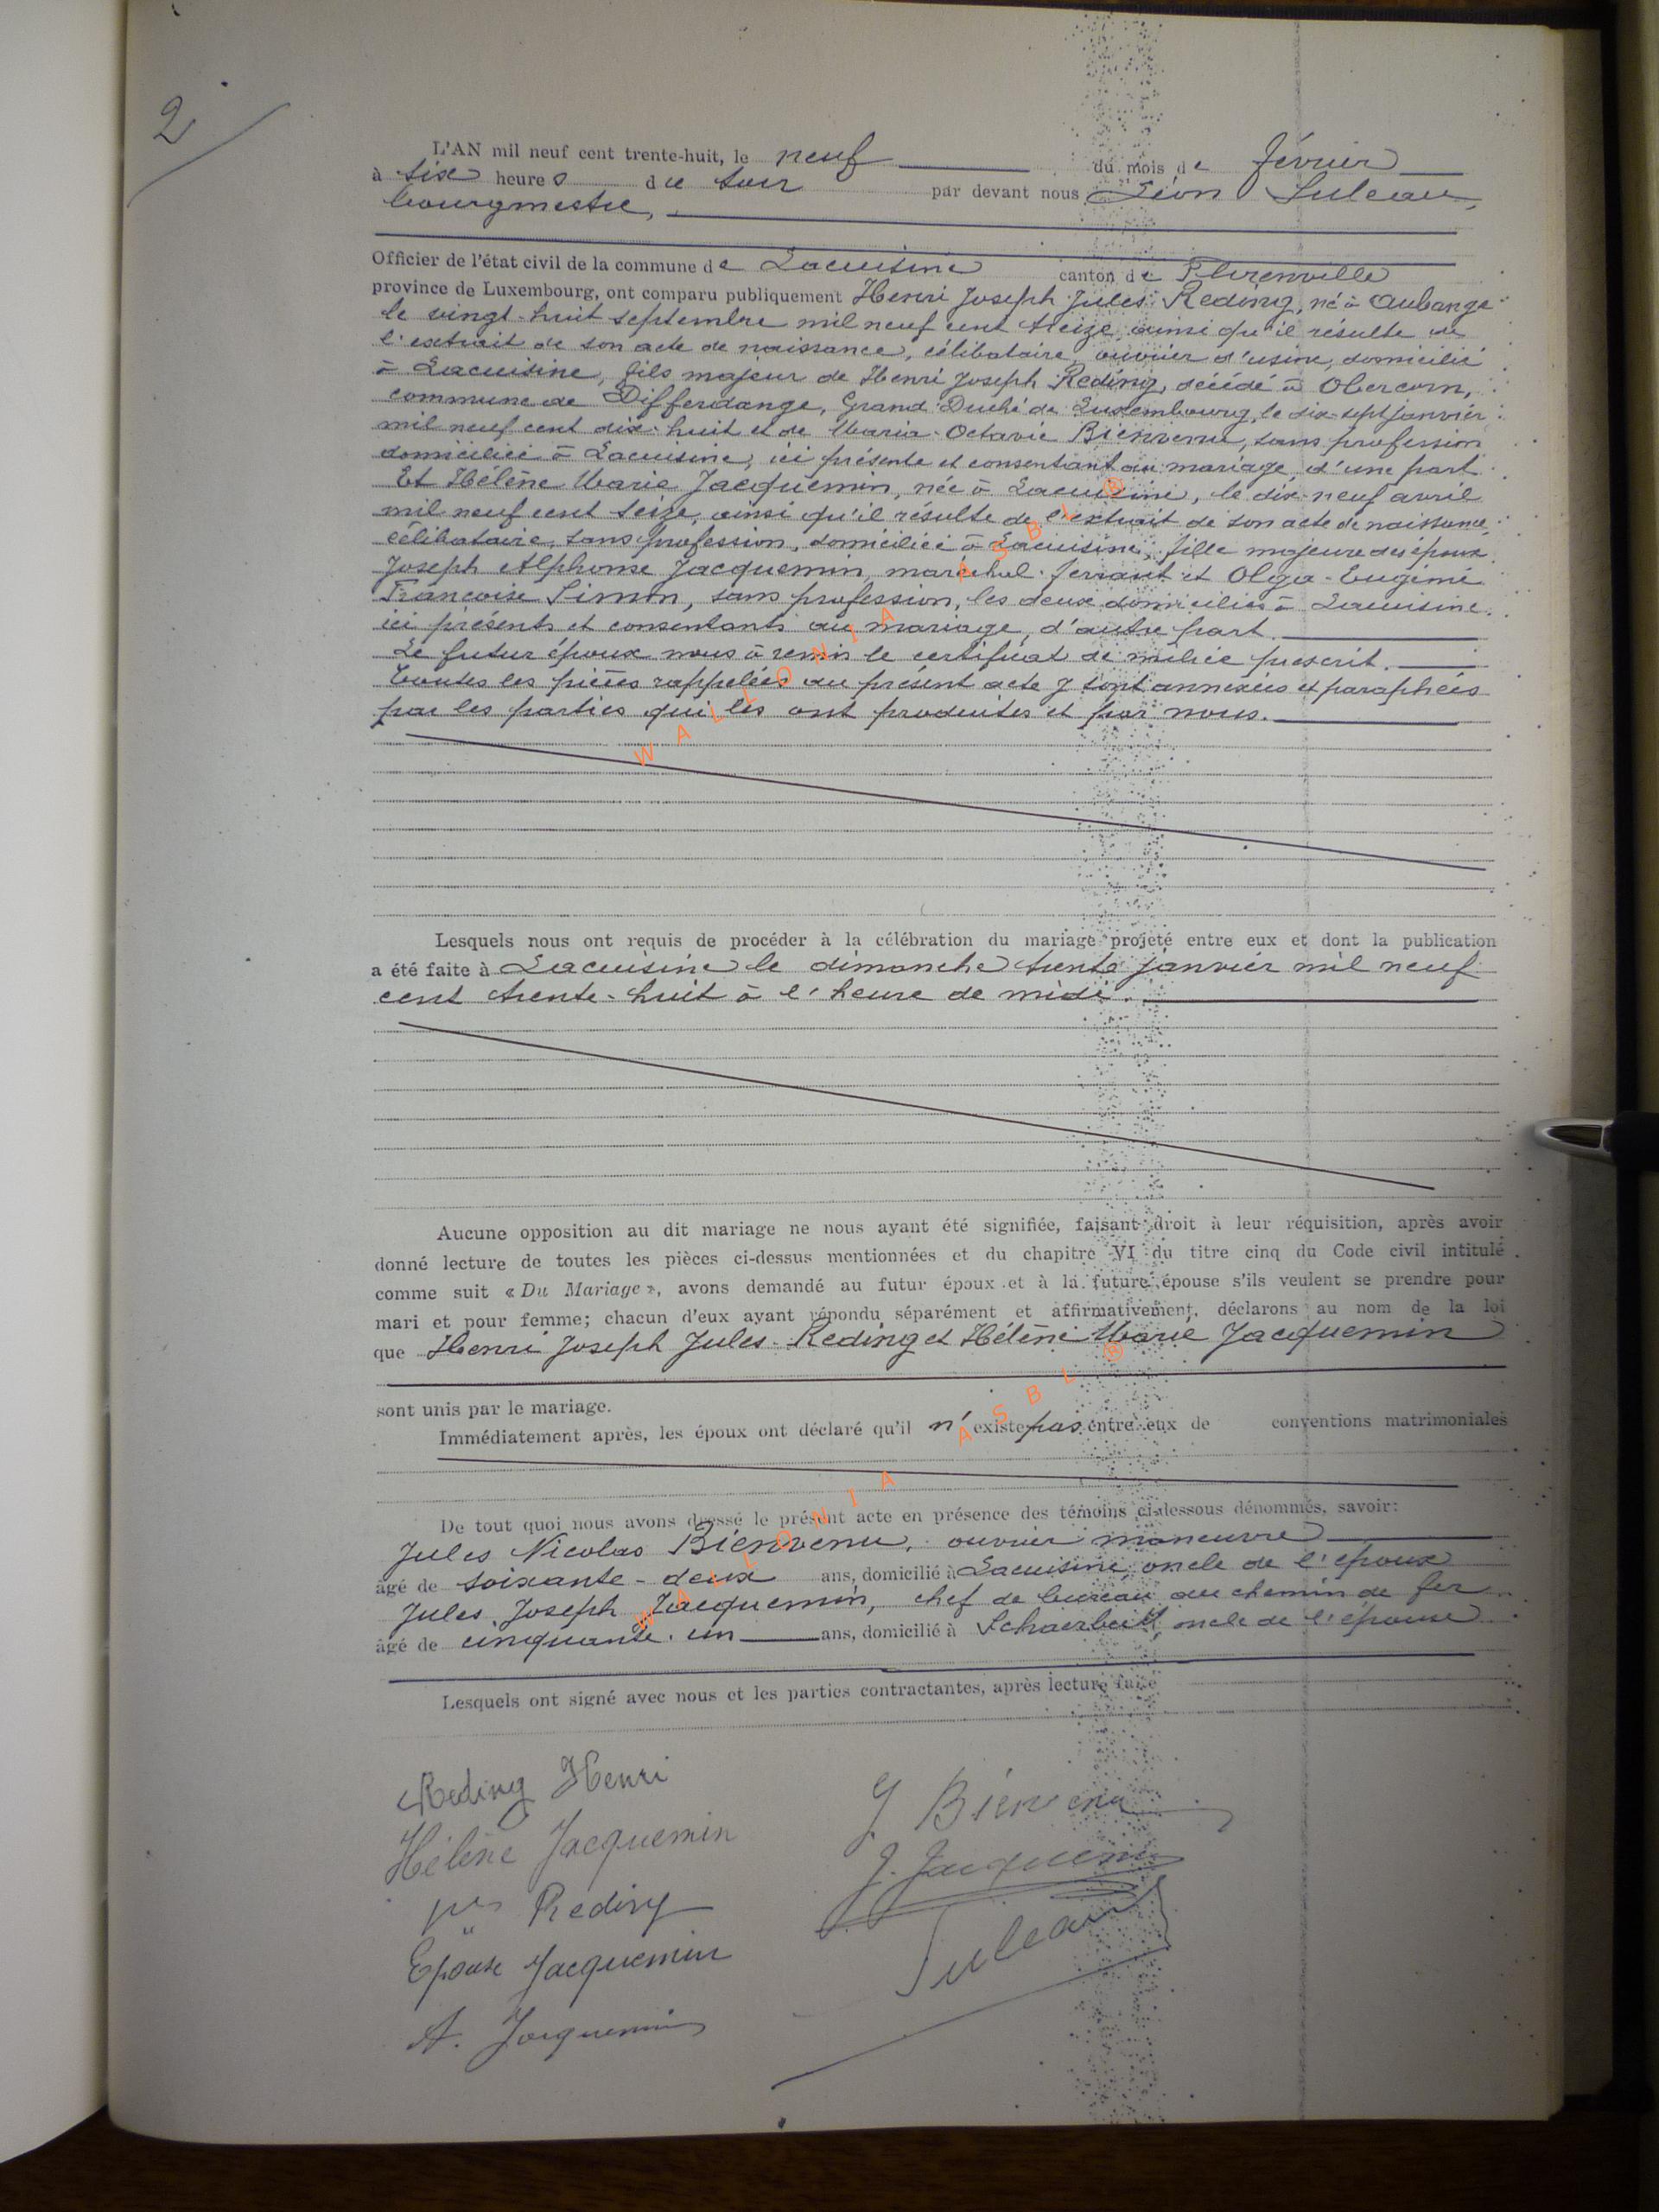 2
L'AN mil neuf cent trente-huit, le neuf du mois de février
à six heures du soir par devant nous Léon Suleau,
bourgmestre,
Officier de l'état civil de la commune de Lacuisine canton de Florenville
province de Luxembourg, ont comparu publiquement Henri Joseph Jules Reding, né à Aubange
le vingt-huit septembre mil neuf cent treize, ainsi qu'il résulte de
l'extrait de son acte de naissance, célibataire, ouvrier d'usine, domicilié
à Lacuisine, fils majeur de Henri Joseph Reding, décédé à Obercorn,
commune de Differdange, Grand Duché de Luxembourg, le dix-sept janvier
mil neuf cent dix-huit et de Maria-Octavie Bienvenu, sans profession
domiciliée à Lacuisine, ici présente et consentant au mariage, d'une part
Et Hélène Marie Jacquemin, née à Lacuisine, le dix-neuf avril
mil neuf cent seize, ainsi qu'il résulte de l'extrait de son acte de naissance,
célibataire, sans profession, domiciliée à Lacuisine, fille majeure des époux
Joseph Alphonse Jacquemin, maréchal-ferrant et Olga-Eugénie
Françoise Simon, sans profession, les deux domiciliés à Lacuisine,
ici présents et consentants au mariage, d'autre part.
Le futur époux nous à remis le certificat de milice prescrit.
Toutes les pièces rappelées au présent acte y sont annexées et paraphées
par les parties qui les ont produites et par nous.
WALLONIA ASBL ®
Lesquels nous ont requis de procéder à la célébration du mariage projeté entre eux et dont la publication
a été faite à Lacuisine le dimanche trente janvier mil neuf
cent trente-huit à l'heure de midi.
Aucune opposition au dit mariage ne nous ayant été signifiée, faisant droit à leur réquisition, après avoir
donné lecture de toutes les pièces ci-dessus mentionnées et du chapitre VI du titre cinq du Code civil intitulé
comme suit « Du Mariage », avons demandé au futur époux et à la future épouse s'ils veulent se prendre pour
mari et pour femme; chacun d'eux ayant répondu séparément et affirmativement, déclarons au nom de la loi
que Henri Joseph Jules Reding et Hélène Marie Jacquemin
sont unis par le mariage.
Immédiatement après, les époux ont déclaré qu'il n'existe pas entre eux de conventions matrimoniales
De tout quoi nous avons dressé le présent acte en présence des témoins ci-dessous dénommés, savoir:
Jules Nicolas Bienvenu, ouvrier manœuvre
âgé de soixante-deux ans, domicilié à Lacuisine, oncle de l'époux
Jules Joseph Jacquemin, chef de bureau au chemin de fer
âgé de cinquante-un ans, domicilié à Schaerbeek, oncle de l'épouse
WALLONIA ASBL ®
Lesquels ont signé avec nous et les parties contractantes, après lecture faite
Reding Henri
J Bienvenu
Hélène Jacquemin
J. Jacquemin
Reding
Suleau
Epouse Jacquemin
A. Jacquemin